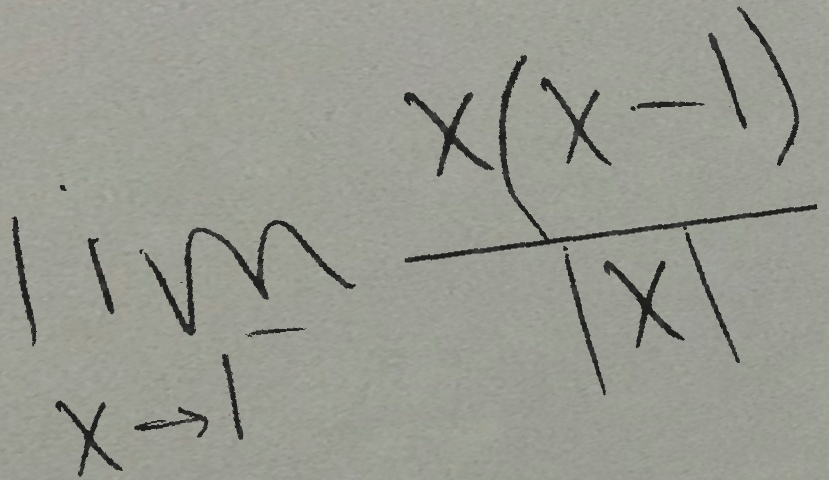 lim x→1⁻ x(x-1)/|x|